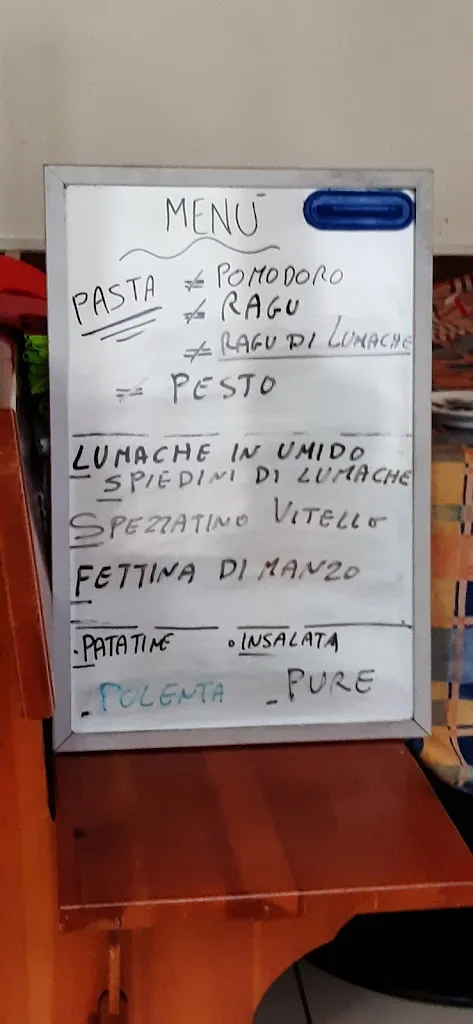 MENÙ
PASTA ≠ POMODORO
≠ RAGU
≠ RAGU DI LUMACHE
= PESTO
LUMACHE IN UMIDO
SPIEDINI DI LUMACHE
SPEZZATINO VITELLO
FETTINA DI MANZO
. PATATINE • INSALATA
- POLENTA - PURE